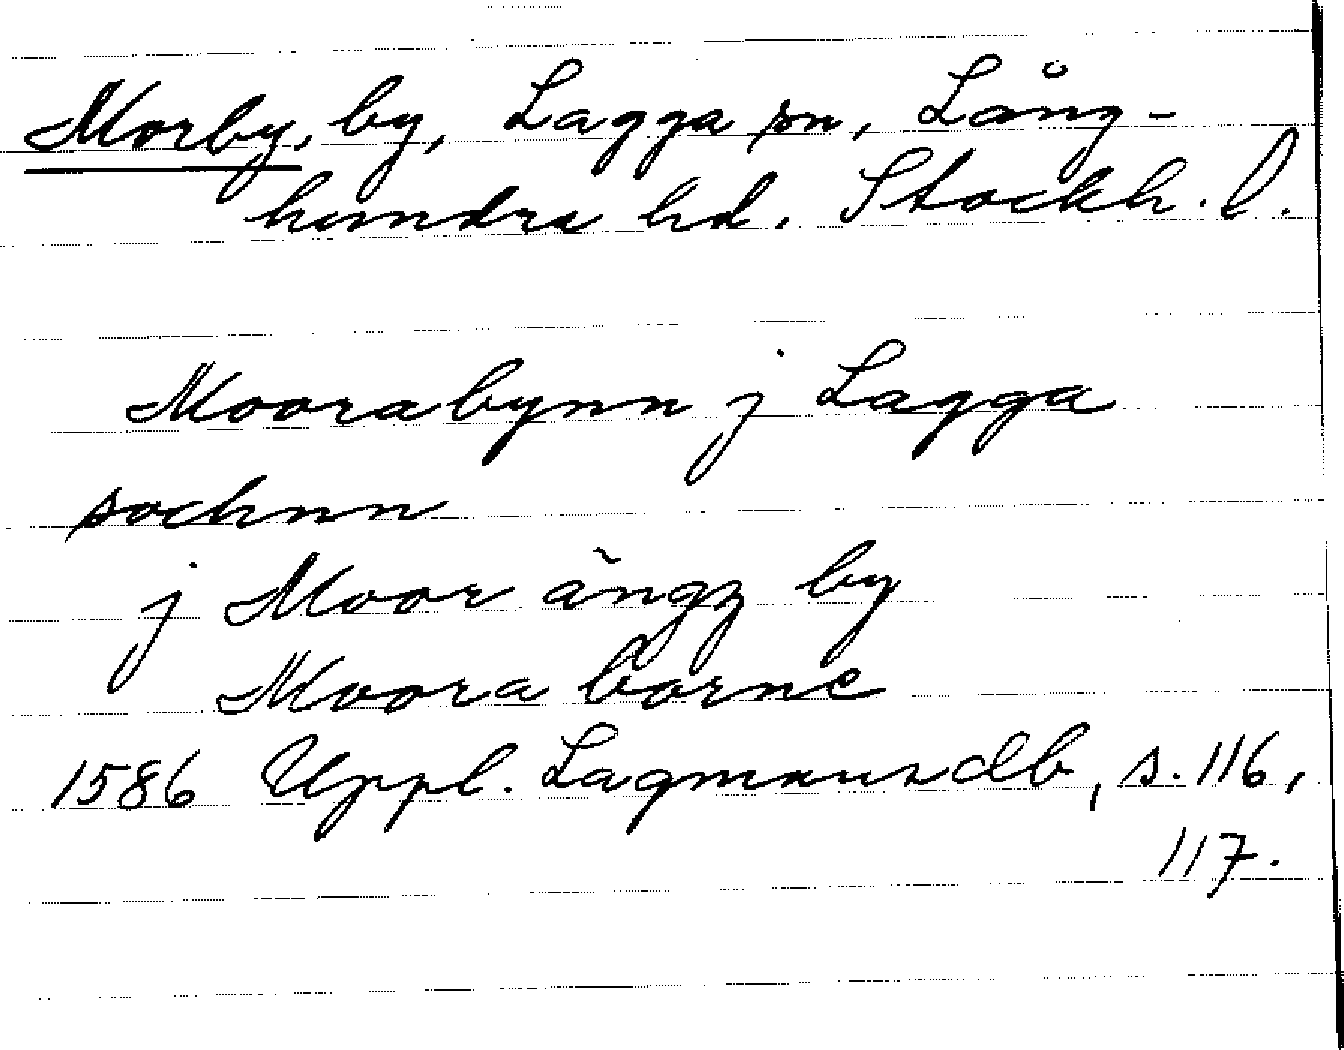 Morby, by, Lagga sn, Lång-
hundra hd. Stockh. l.
Moorabynn j Lagga
sochnn
j Moor ängz by
Moora borne
1586 Uppl. Lagmansdb, s. 116,
117.